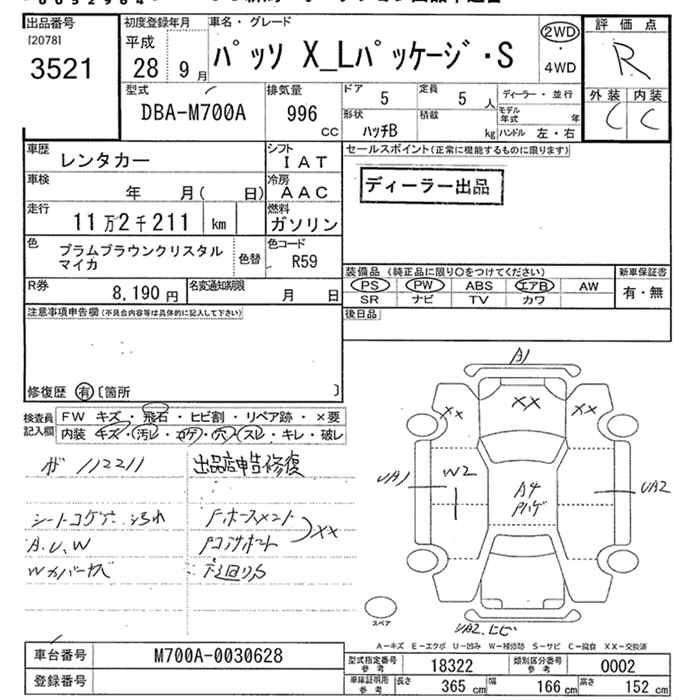 出品番号
[2078]
3521
初度登録年月
平成
28 9月
車名・グレード
パッソ X_Lパッケージ・S
2WD
・
4WD
評価点
R
外装 内装
C C
型式
DBA-M700A
排気量
996
CC
ドア
5
定員
5 人
ディーラー・並行
モデル年式 年
形状
ハッチB
積載
kg
ハンドル 左・右
車歴
レンタカー
シフト
IAT
セールスポイント(正常に機能するものに限ります)
ディーラー出品
車検
年 月( 日)
冷房
AAC
走行
11万2千211 km
燃料
ガソリン
色
プラムブラウンクリスタル
マイカ
色替
色コード
R59
装備品 (純正品に限り〇をつけてください)
PS PW ABS エアB AW
SR ナビ TV カワ
新車保証書
有・無
R券
8,190 円
名変通知期限
月 日
後日品
注意事項申告欄(不具合内容等は具体的に記入して下さい)
修復歴 有 〔箇所 〕
検査員
記入欄
FW キズ・飛石・ヒビ割・リペア跡・×要
内装 キズ・汚レ・コゲ・穴・スレ・キレ・破レ
ガ 112211
出品店申告修復
シートコゲ穴 汚れ
A.U.W
Wカバーキズ
XX
A1
XX
XX
XX
UA1
W2
A4
UA2
UA2.ヒビ
スペア
A-キズ E-エクボ U-凹み W-補修跡 S-サビ C-腐食 XX-交換済
車台番号
M700A-0030628
登録番号
型式指定番号
参考
18322
類別区分番号
参考
0002
車庫証明用
参考
長さ
365 cm
幅
166 cm
高さ
152 cm